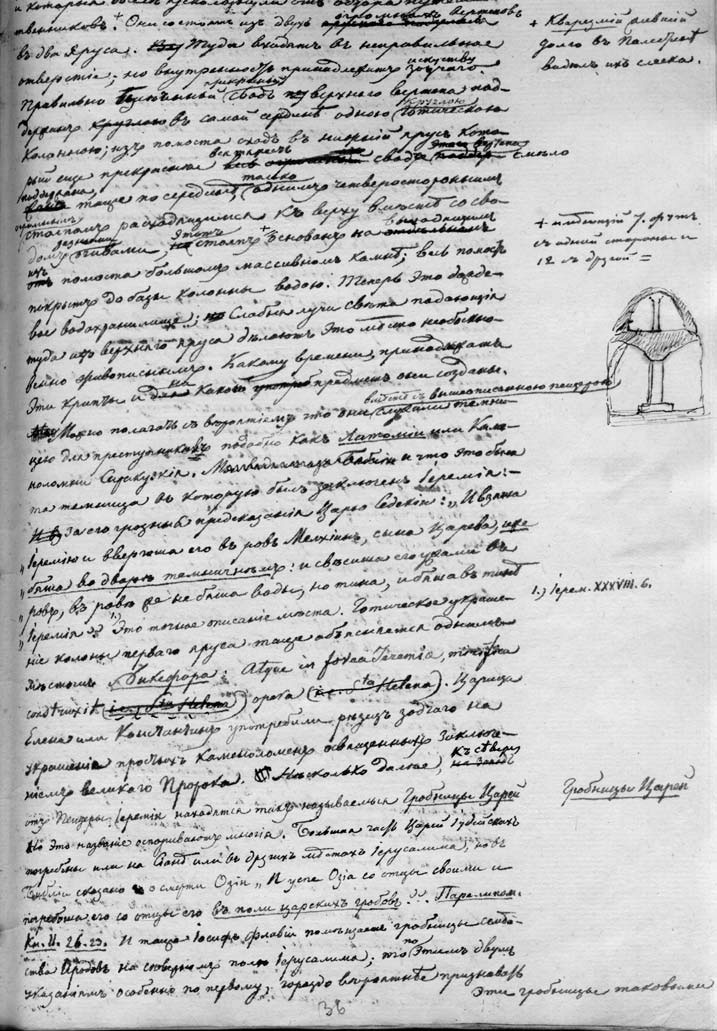 въ два Яруса. Туда входятъ въ неправильное
отверстіе; но внутренность принадлежитъ искуству зодчаго.
Правильно сводъ верхняго вертепа под-
держанъ въ самой средине одною круглою
колонною; изъ помоста сходъ въ нижній ярусъ кото-
рый еще прекраснее сводъ смѣло
также по средине только однимъ четверостороннимъ
столпомъ расходящимся къ верху вместе со сво-
домъ столпъ + основанъ на
помоста большомъ массивномъ камнѣ; весь помостъ
покрытъ до базы колонны водою. Теперь это дожде-
вое водохранилище; Слабыя лучи света падающія
туда изъ верхняго яруса делаютъ это место необыкно-
венно живописнымъ. Какому времени принадлежатъ
Эти крипты и на какой предметъ они созданы.
вместе съ вышеописанною пещерою
Можно полагать съ вероятіемъ что они служили темни-
цею для преступниковъ подобно какъ Латоміи или Каме-
ноломни Сиракузскія. и что это была
та темница въ которую былъ заключенъ Іеремія:
За его грозныя предсказанія Царю Седекіи: „И взяша
„Іеремію и ввергоша его въ ровъ Мелхіинъ, сына Царева, иже
„бяше во дворе темничнемъ: и свесиша его ужами въ
„ровъ, въ рове же не бяше воды, но тина, и бяше въ тине
„Іеремія 1.) Это точное описаніе места. Готическое украше-
ніе колоны перваго яруса также объясняется однимъ
местомъ Никефора: Atque in fovea Ieremia,
(Sta Helena) opera (Sta Helena). Царица
Елена или Константинъ употребили резецъ зодчаго на
украшеніе простыхъ каменоломенъ освященныхъ заключе-
ніемъ великаго Пророка. Несколько далее, къ северу
отъ Пещеры Іереміи находятся такъ называемыя Гробницы Царей
Но это названіе оспориваютъ многія. Большая часть Царей Іудейскихъ
погребены или на Сіоне или въ другихъ местахъ Іерусалима; но въ
Библіи сказано о смерти Озіи „И успе Озіа со отцы своими и
погребоша его со отцы его въ поли царскихъ гробовъ. Паралипом.
Кн. II. 26. 23. И также Іосифъ Флавій помещаетъ гробницы семей-
ства Иродовъ на северномъ поле Іерусалима; то по Этимъ двумъ
указаніямъ особенно по первому, гораздо вероятнее признавать
эти гробницы таковыми
+ древній
долго въ
виделъ ихъ слегка.
+ имеющій 7. футъ
съ одной стороны и
12 съ другой =
1.) Іерем. XXXVIII. 6.
Гробницы Царей
36